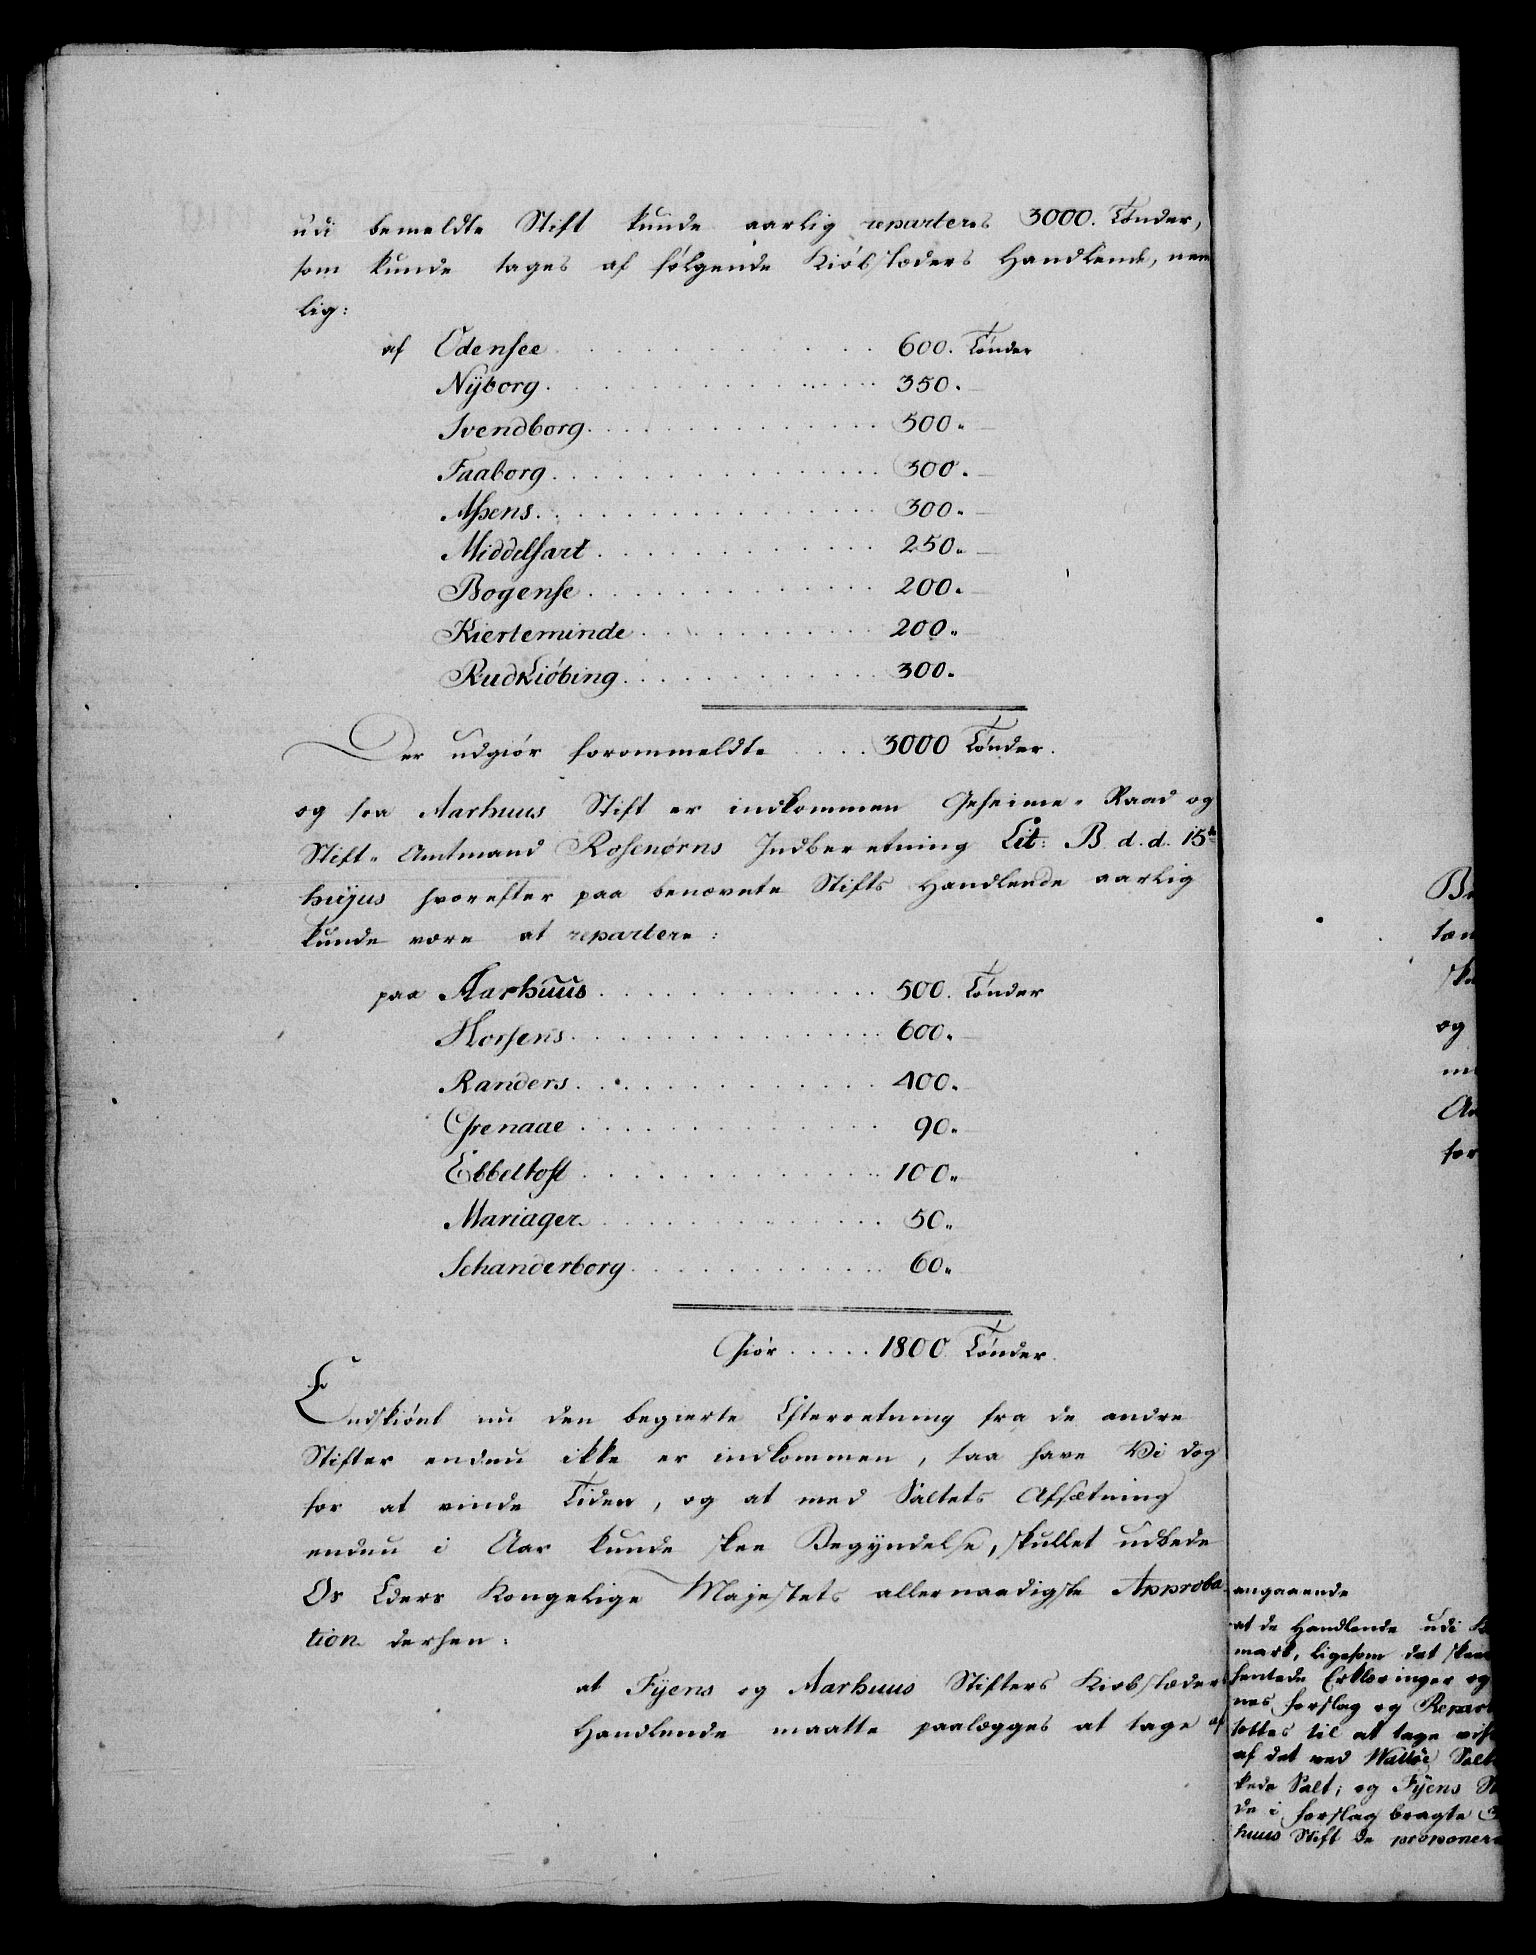 udi bemeldte Stift kunde aarlig reparteres 3000. Tønder,
som kunde tages af følgende Kiøbstæders Handlende, nem
lig:
af Odensee . . . . 600. Tønder
Nÿborg . . . . 350. —
Svendborg . . . . 500. —
Faaborg . . . . 300. —
Assens . . . . 300. —
Middelfart . . . . 250. —
Bogense . . . . 200. —
Kierteminde . . . . 200. —
Rudkiøbing . . . . 300.
Der udgiør forommeldte . . . . 3000 Tønder.
og fra Aarhuus Stift er indkommen Geheime-Raad og
Stift-Amtmand Rosenørns Indberetning Lit: B d. d. 15de
hujus hvorefter paa benævnte Stifts Handlende aarlig
kunde være at repartere:
paa Aarhuus . . . . 500. Tønder
Horsens . . . . 600. —
Randers . . . . 400. —
Grenaae . . . . 90. —
Ebbeltoft . . . . 100. —
Mariager . . . . 50. —
Schanderborg . . . . 60. —
Giør . . . . . 1800 Tønder.
Endskiønt nu den begierte Efterretning fra de andre
Stifter endnu ikke er indkommen, saa have Vi dog
for at vinde Tiden, og at med Saltets Afsætning
endnu i Aar kunde skee Begyndelse, skullet udbede
Os Eders Kongelige Majestets allernaadigste Approba
tion derhen:
at Fyens og Aarhuus Stifters Kiøbstæders
Handlende maatte paalægges at tage af
angaaende
at de Handlende udi
mark, ligesom det skeer
hentede Erklæringer og
nes forslag og Repart
sættes til at tage
af det ved Walløe Salt
kede Salt; og Fyens
de i forslag bragte
huus Stift de proponere
og
for